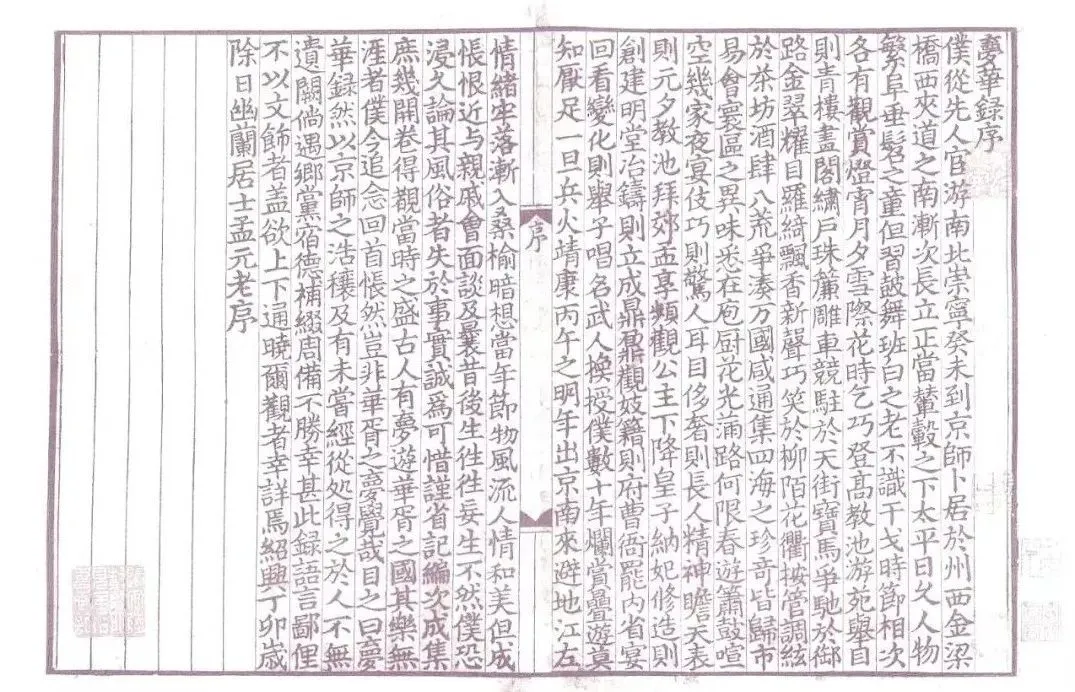 夢華錄序
僕從先人宦游南北崇寧癸未到京師卜居於州西金梁
橋西夾道之南漸次長立正當輦轂之下太平日久人物
繁阜垂髫之童但習鼓舞班白之老不識干戈時節相次
各有觀賞燈宵月夕雪際花時乞巧登高教池游苑舉目
則青樓畫閣繡戶珠簾雕車競駐於天街寶馬爭馳於御
路金翠耀目羅綺飄香新聲巧笑於柳陌花衢按管調絃
於茶坊酒肆八荒爭湊萬國咸通集四海之珍奇皆歸市
易會寰區之異味悉在庖厨花光滿路何限春遊簫鼓喧
空幾家夜宴伎巧則驚人耳目侈奢則長人精神瞻天表
則元夕教池拜郊孟享頻觀公主下降皇子納妃修造則
創建明堂冶鑄則立成鼎鼐觀妓籍則府曹衙罷內省宴
回看變化則舉子唱名武人換授僕數十年爛賞疊遊莫
知厭足一旦兵火靖康丙午之明年出京南來避地江左
序
情緒牢落漸入桑榆暗想當年節物風流人情和美但成
悵恨近与親戚會面談及曩昔後生徃徃妄生不然僕恐
浸久論其風俗者失於事實誠爲可惜謹省記編次成集
庶幾開卷得觀當時之盛古人有夢遊華胥之國其樂無
涯者僕今追念回首悵然豈非華胥之夢覺哉目之曰夢
華録然以京師之浩穰及有未嘗經從処得之於人不無
遺闕倘遇鄉黨宿德補綴周備不勝幸甚此録語言鄙俚
不以文飾者盖欲上下通曉爾觀者幸詳焉紹興丁卯歲
除日幽蘭居士孟元老序